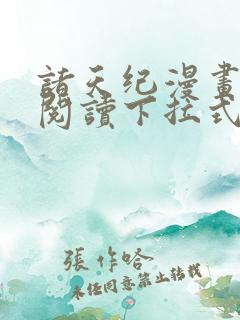 諸天纪漫畫
閱讀下拉式
張作哈
未经同意禁止转载